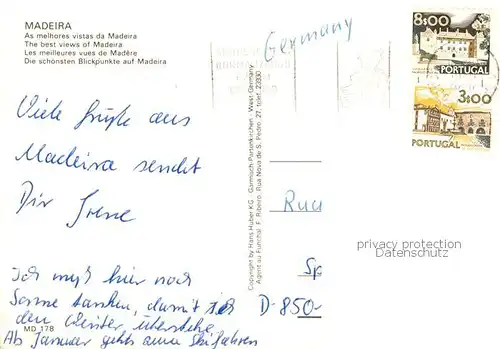 MADEIRA
As melhores vistas da Madeira
The best views of Madeira
Les meilleures vues de Madère
Die schönsten Blickpunkte auf Madeira
Germany
8$00
PORTUGAL
3$00
PORTUGAL
Viele Grüße aus
Madeira sendet
Dir Irene
Ich muß hier noch
Sonne tanken, damit ich
den Winter überstehe
Ab Januar gehts zum Skifahren
MD 178
Copyright by Hans Huber KG - Garmisch-Partenkirchen - West Germany
Agent au Funchal: F. Ribeiro, Rua Nova de S. Pedro, 27, telef. 23930
Sp
D-850-
privacy protection
Datenschutz